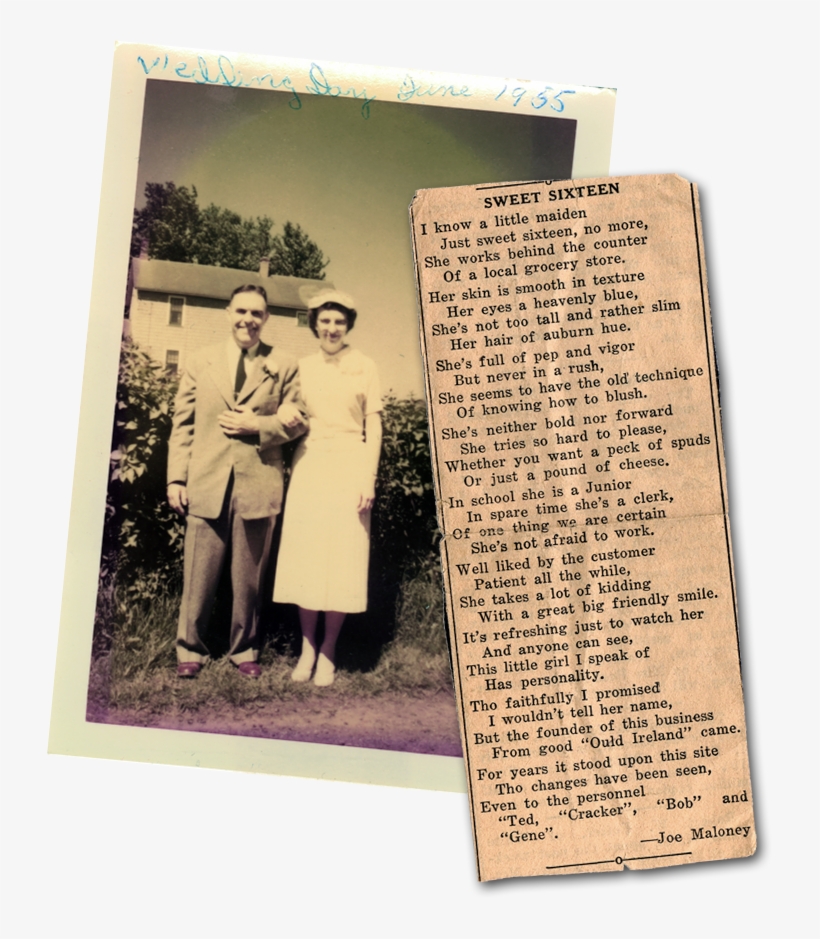 Wedding Day June 1955
SWEET SIXTEEN
I know a little maiden
Just sweet sixteen, no more,
She works behind the counter
Of a local grocery store.
Her skin is smooth in texture
Her eyes a heavenly blue,
She's not too tall and rather slim
Her hair of auburn hue.
She's full of pep and vigor
But never in a rush,
She seems to have the old technique
Of knowing how to blush.
She's neither bold nor forward
She tries so hard to please,
Whether you want a peck of spuds
Or just a pound of cheese.
In school she is a Junior
In spare time she's a clerk,
Of one thing we are certain
She's not afraid to work.
Well liked by the customer
Patient all the while,
She takes a lot of kidding
With a great big friendly smile.
It's refreshing just to watch her
And anyone can see,
This little girl I speak of
Has personality.
Tho faithfully I promised
I wouldn't tell her name,
But the founder of this business
From good "Ould Ireland" came.
For years it stood upon this site
Tho changes have been seen,
Even to the personnel
"Ted, "Cracker", "Bob" and
"Gene".
—Joe Maloney